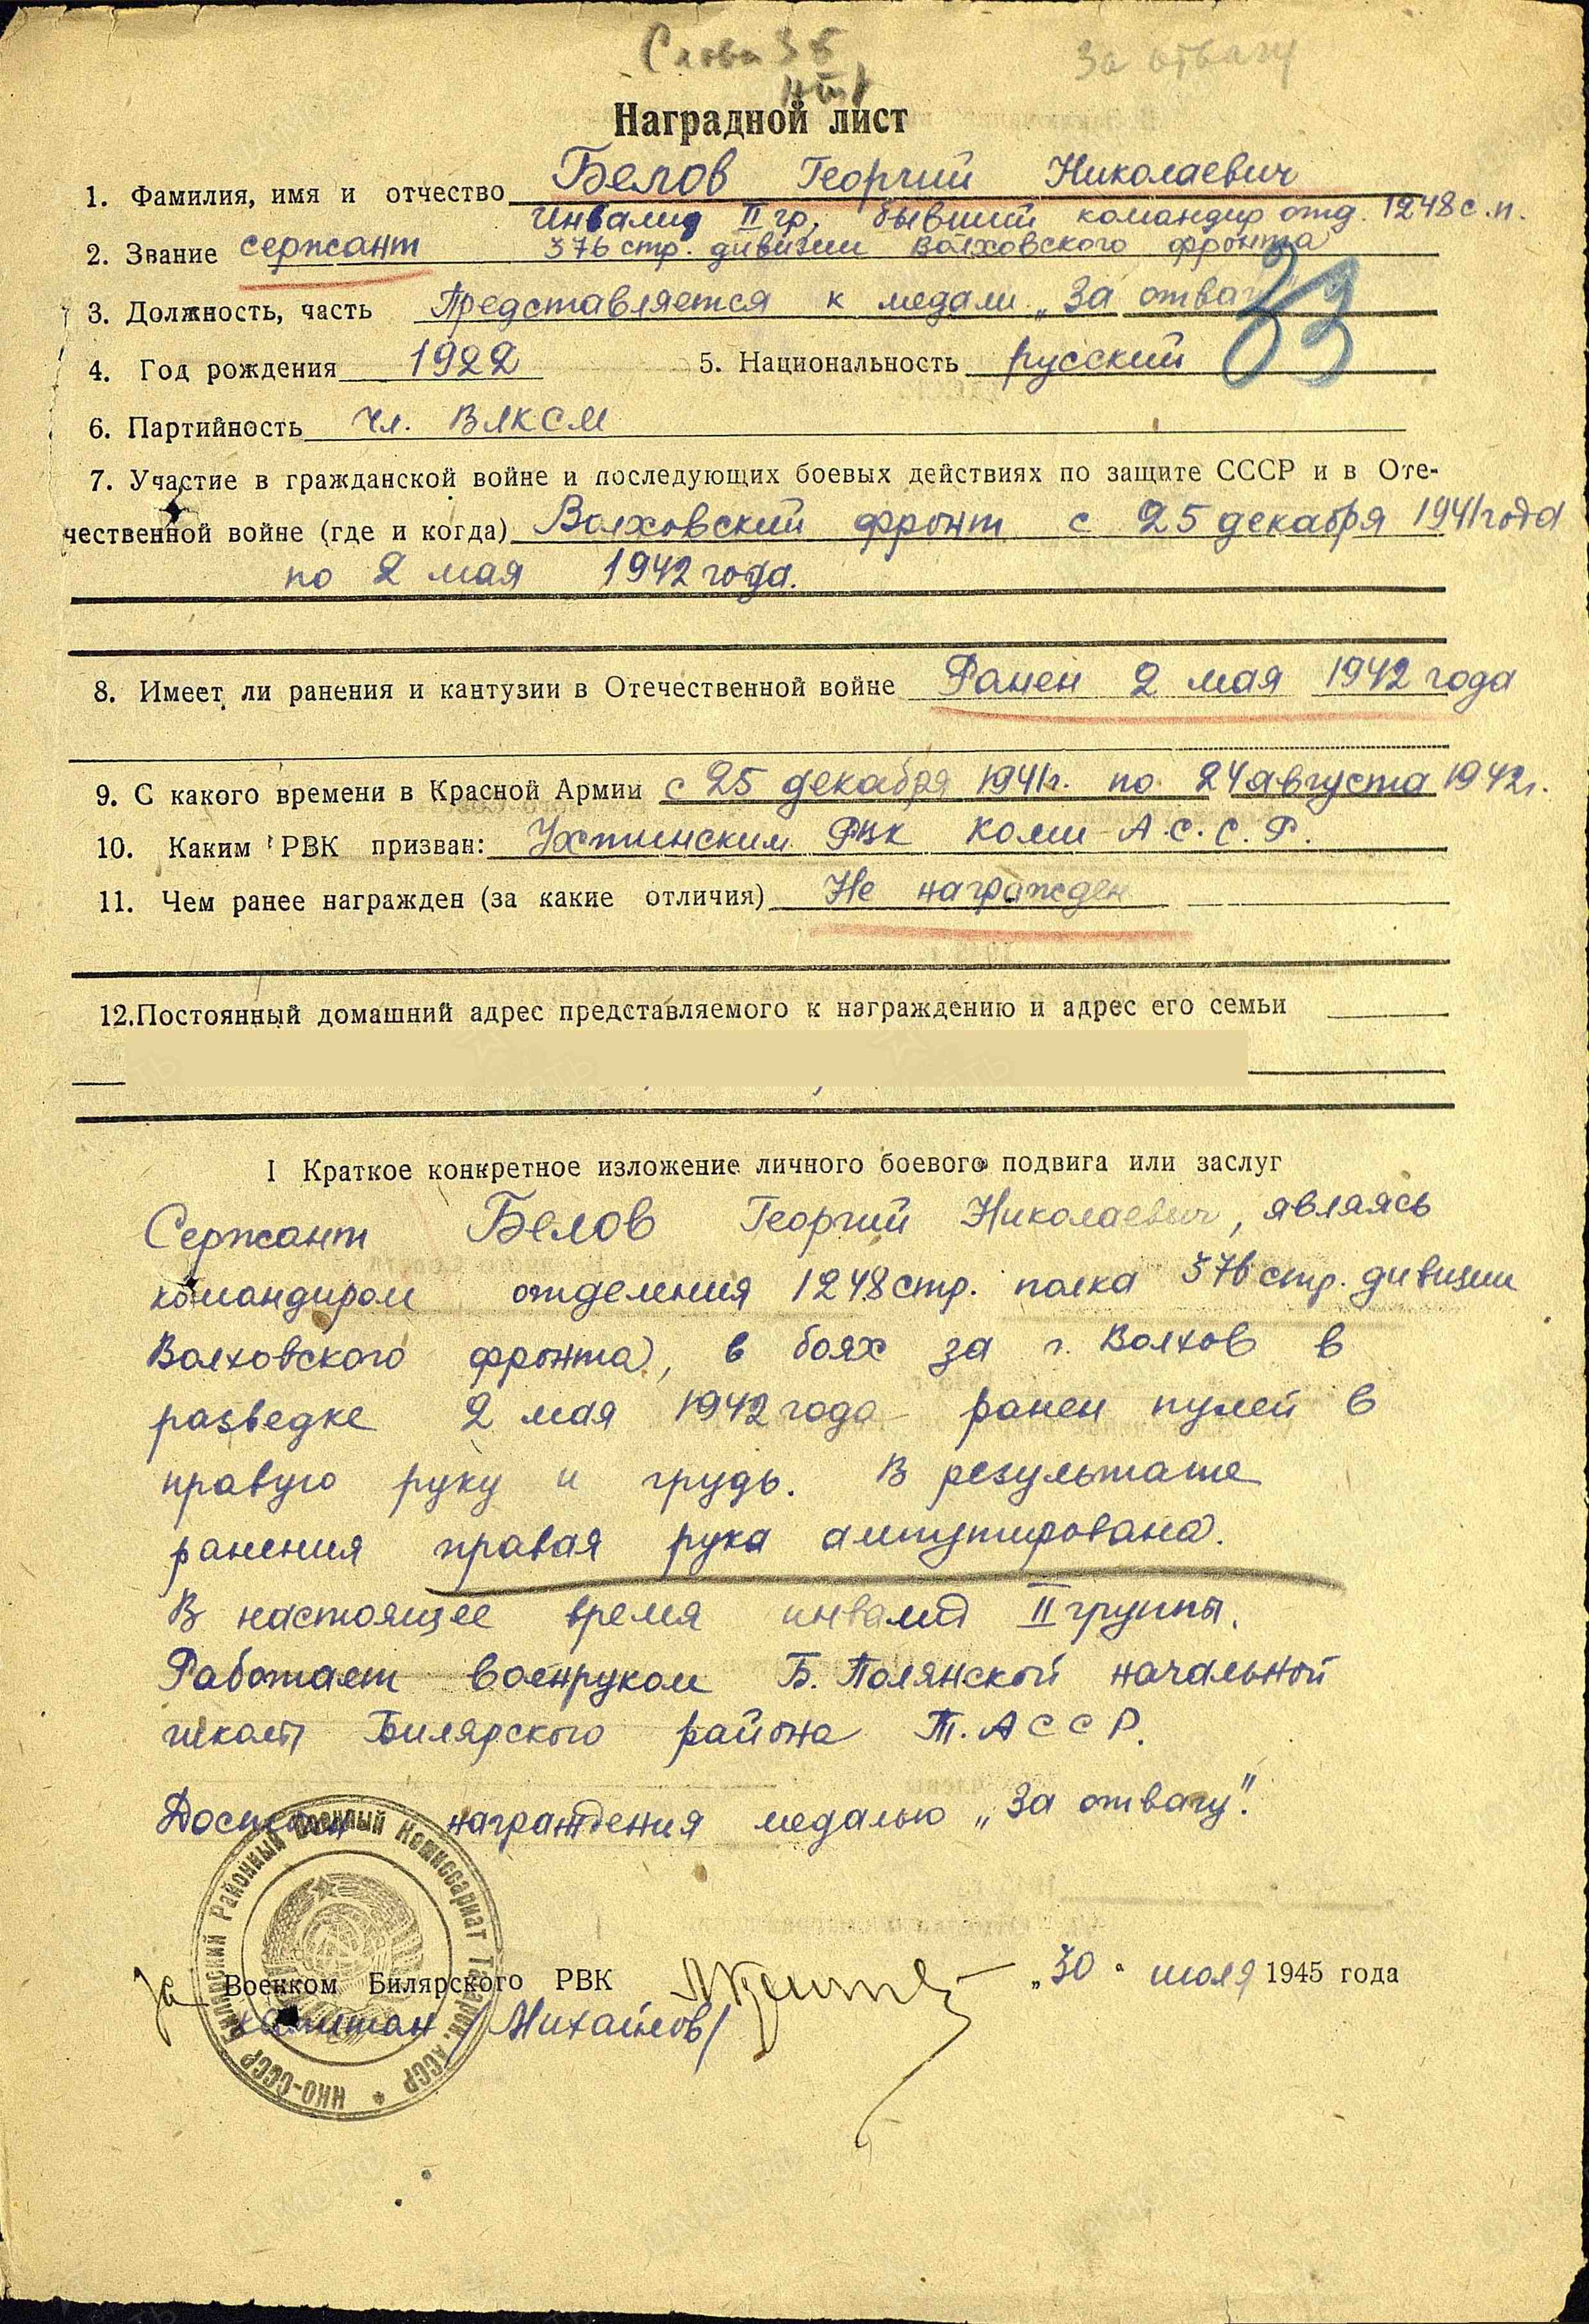 За отвагу
Наградной лист
1. Фамилия, имя и отчество Белов Георгий Николаевич
Инвалид II гр, бывший командир отд. 1248 с.п.
2. Звание сержант 376 стр. дивизии Волховского фронта
3. Должность, часть Представляется к медали „За отвагу
33
4. Год рождения 1922 5. Национальность русский
6. Партийность чл. ВЛКСМ
7. Участие в гражданской войне и последующих боевых действиях по защите СССР и в Оте-
чественной войне (где и когда) Волховский фронт с 25 декабря 1941 года
по 2 мая 1942 года.
8. Имеет ли ранения и кантузии в Отечественной войне Ранен 2 мая 1942 года
9. С какого времени в Красной Армии с 25 декабря 1941г. по 24 августа 1942г.
10. Каким РВК призван: Ухтинским РВК Коми А.С.С.Р.
11. Чем ранее награжден (за какие отличия) Не награжден
12. Постоянный домашний адрес представляемого к награждению и адрес его семьи
I Краткое конкретное изложение личного боевого подвига или заслуг
Сержант Белов Георгий Николаевич, являясь
командиром отделения 1248 стр. полка 376 стр. дивизии
Волховского фронта, в боях за г. Волхов в
разведке 2 мая 1942 года ранен пулей в
правую руку и грудь. В результате
ранения правая рука ампутирована.
В настоящее время инвалид II группы.
Работает военруком Б. Полянской начальной
школы Билярского района Т.АССР.
Достоин награждения медалью „За отвагу".
За Военком Билярского РВК „30" июля 1945 года
капитан /Михайлов/
НКО-СССР Билярский Районный Военный Комиссариат Татарск. АССР